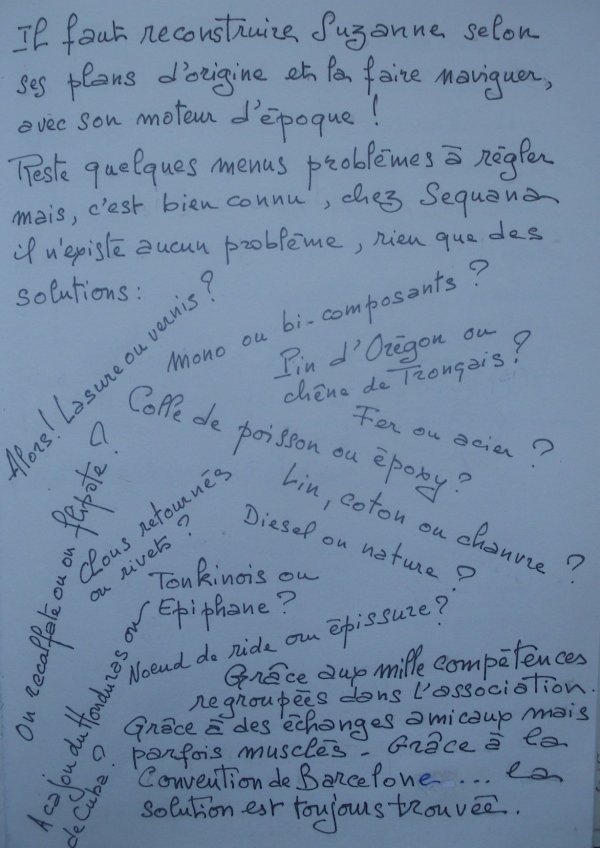 Il faut reconstruire Suzanne selon
ses plans d'origine et la faire naviguer,
avec son moteur d'époque !
Reste quelques menus problèmes à régler
mais, c'est bien connu, chez Sequana
il n'existe aucun problème, rien que des
solutions :
Alors ! Lasure ou vernis ?
mono ou bi-composants ?
Pin d'Orégon ou
chêne de Tronçais ?
Colle de poisson ou époxy ?
Fer ou acier ?
Lin, coton ou chanvre ?
Diesel ou nature ?
On recalfate ou on flipote ?
Clous retournés
ou rivets ?
Tonkinois ou
Epiphane ?
Noeud de ride ou épissure ?
Acajou du Honduras ou
de Cuba ?
Grâce aux mille compétences
regroupées dans l'association.
Grâce à des échanges amicaux mais
parfois musclés - Grâce à la
Convention de Barcelone ... la
solution est toujours trouvée.